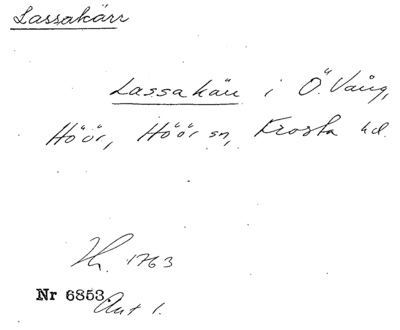 Lassakärr
Lassakärr i Ö. Vång,
Höör, Höör sn, Frosta hd.
Hr. 1763
Nr 6853
Akt 1.